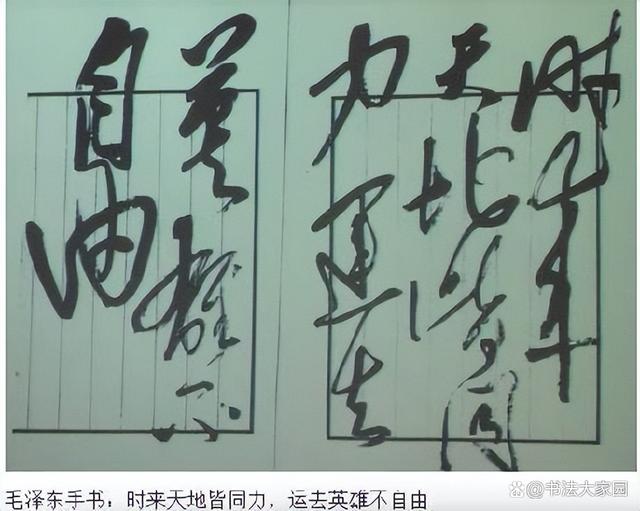 时来
天地皆同
力運去
英雄不
自由
毛泽东手书：时来天地皆同力，运去英雄不自由
书法大家园